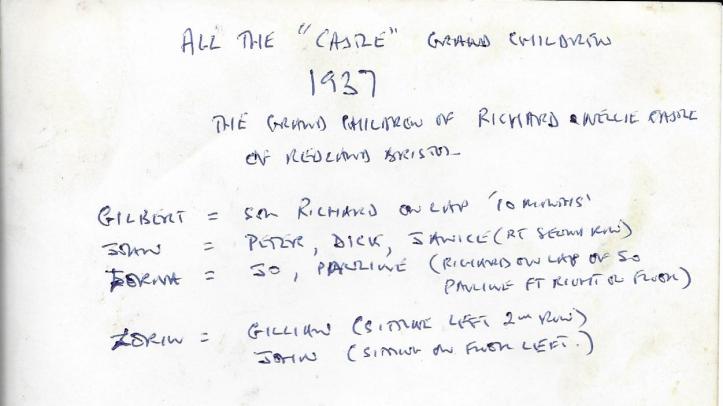 ALL THE "CASTLE" GRAND CHILDREN
1937
THE GRAND CHILDREN OF RICHARD & NELLIE CASTLE
OF REDLAND BRISTOL
GILBERT = SON RICHARD ON LAP '10 MONTHS'
JOAN = PETER, DICK, JANICE (RT SECOND ROW)
LORNA = JO, PAULINE (RICHARD ON LAP OF JO
PAULINE FT RIGHT ON FLOOR)
LORIN = GILLIAN (SITTING LEFT 2ND ROW)
JOHN (SITTING ON FLOOR LEFT.)